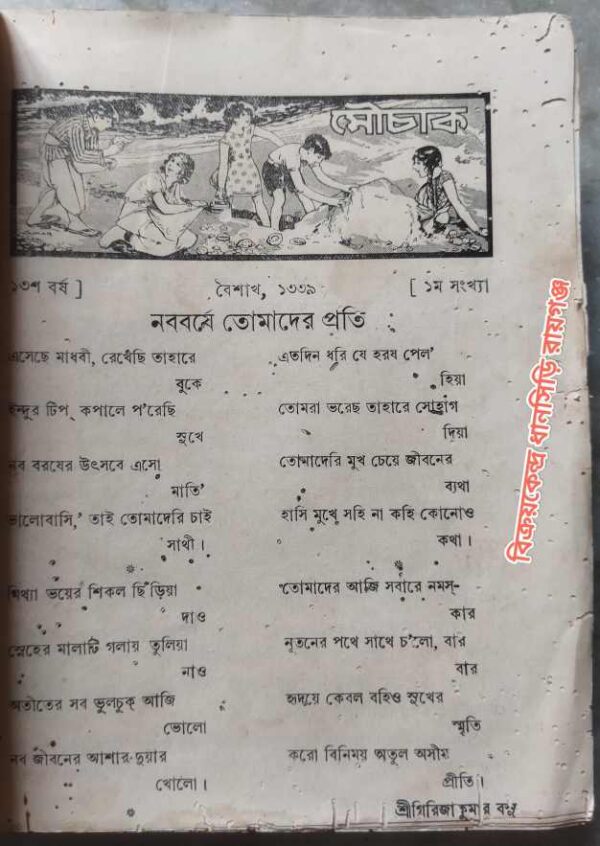 মৌচাক
১৩শ বর্ষ ]
বৈশাখ, ১৩৩৯
[ ১ম সংখ্যা
নববর্ষে তোমাদের প্রতি
এসেছে মাধবী, রেখেছি তাহারে
বুকে
ইন্দুর টিপ্ কপালে প'রেছি
সুখে
নব বরষের উৎসবে এসো
মাতি'
ভালোবাসি,' তাই তোমাদেরি চাই
সাথী।
মিথ্যা ভয়ের শিকল ছিঁড়িয়া
দাও
স্নেহের মালাটি গলায় তুলিয়া
নাও
অতীতের সব ভুলচুক্ আজি
ভোলো
নব জীবনের আশার-দুয়ার
খোলো।
এতদিন ধরি যে হরষ পেল'
হিয়া
তোমরা ভরেছ তাহারে সোহাগ
দিয়া
তোমাদেরি মুখ চেয়ে জীবনের
ব্যথা
হাসি মুখে সহি না কহি কোনোও
কথা।
তোমাদের আজি সবারে নমস্-
কার
নূতনের পথে সাথে চ'লো, বার
বার
হৃদয়ে কেবল বহিও সুখের
স্মৃতি
করো বিনিময় অতুল অসীম
প্রীতি।
শ্রীগিরিজাকুমার বসু
বিক্রয়কেন্দ্র ধানসিড়ি রায়গঞ্জ